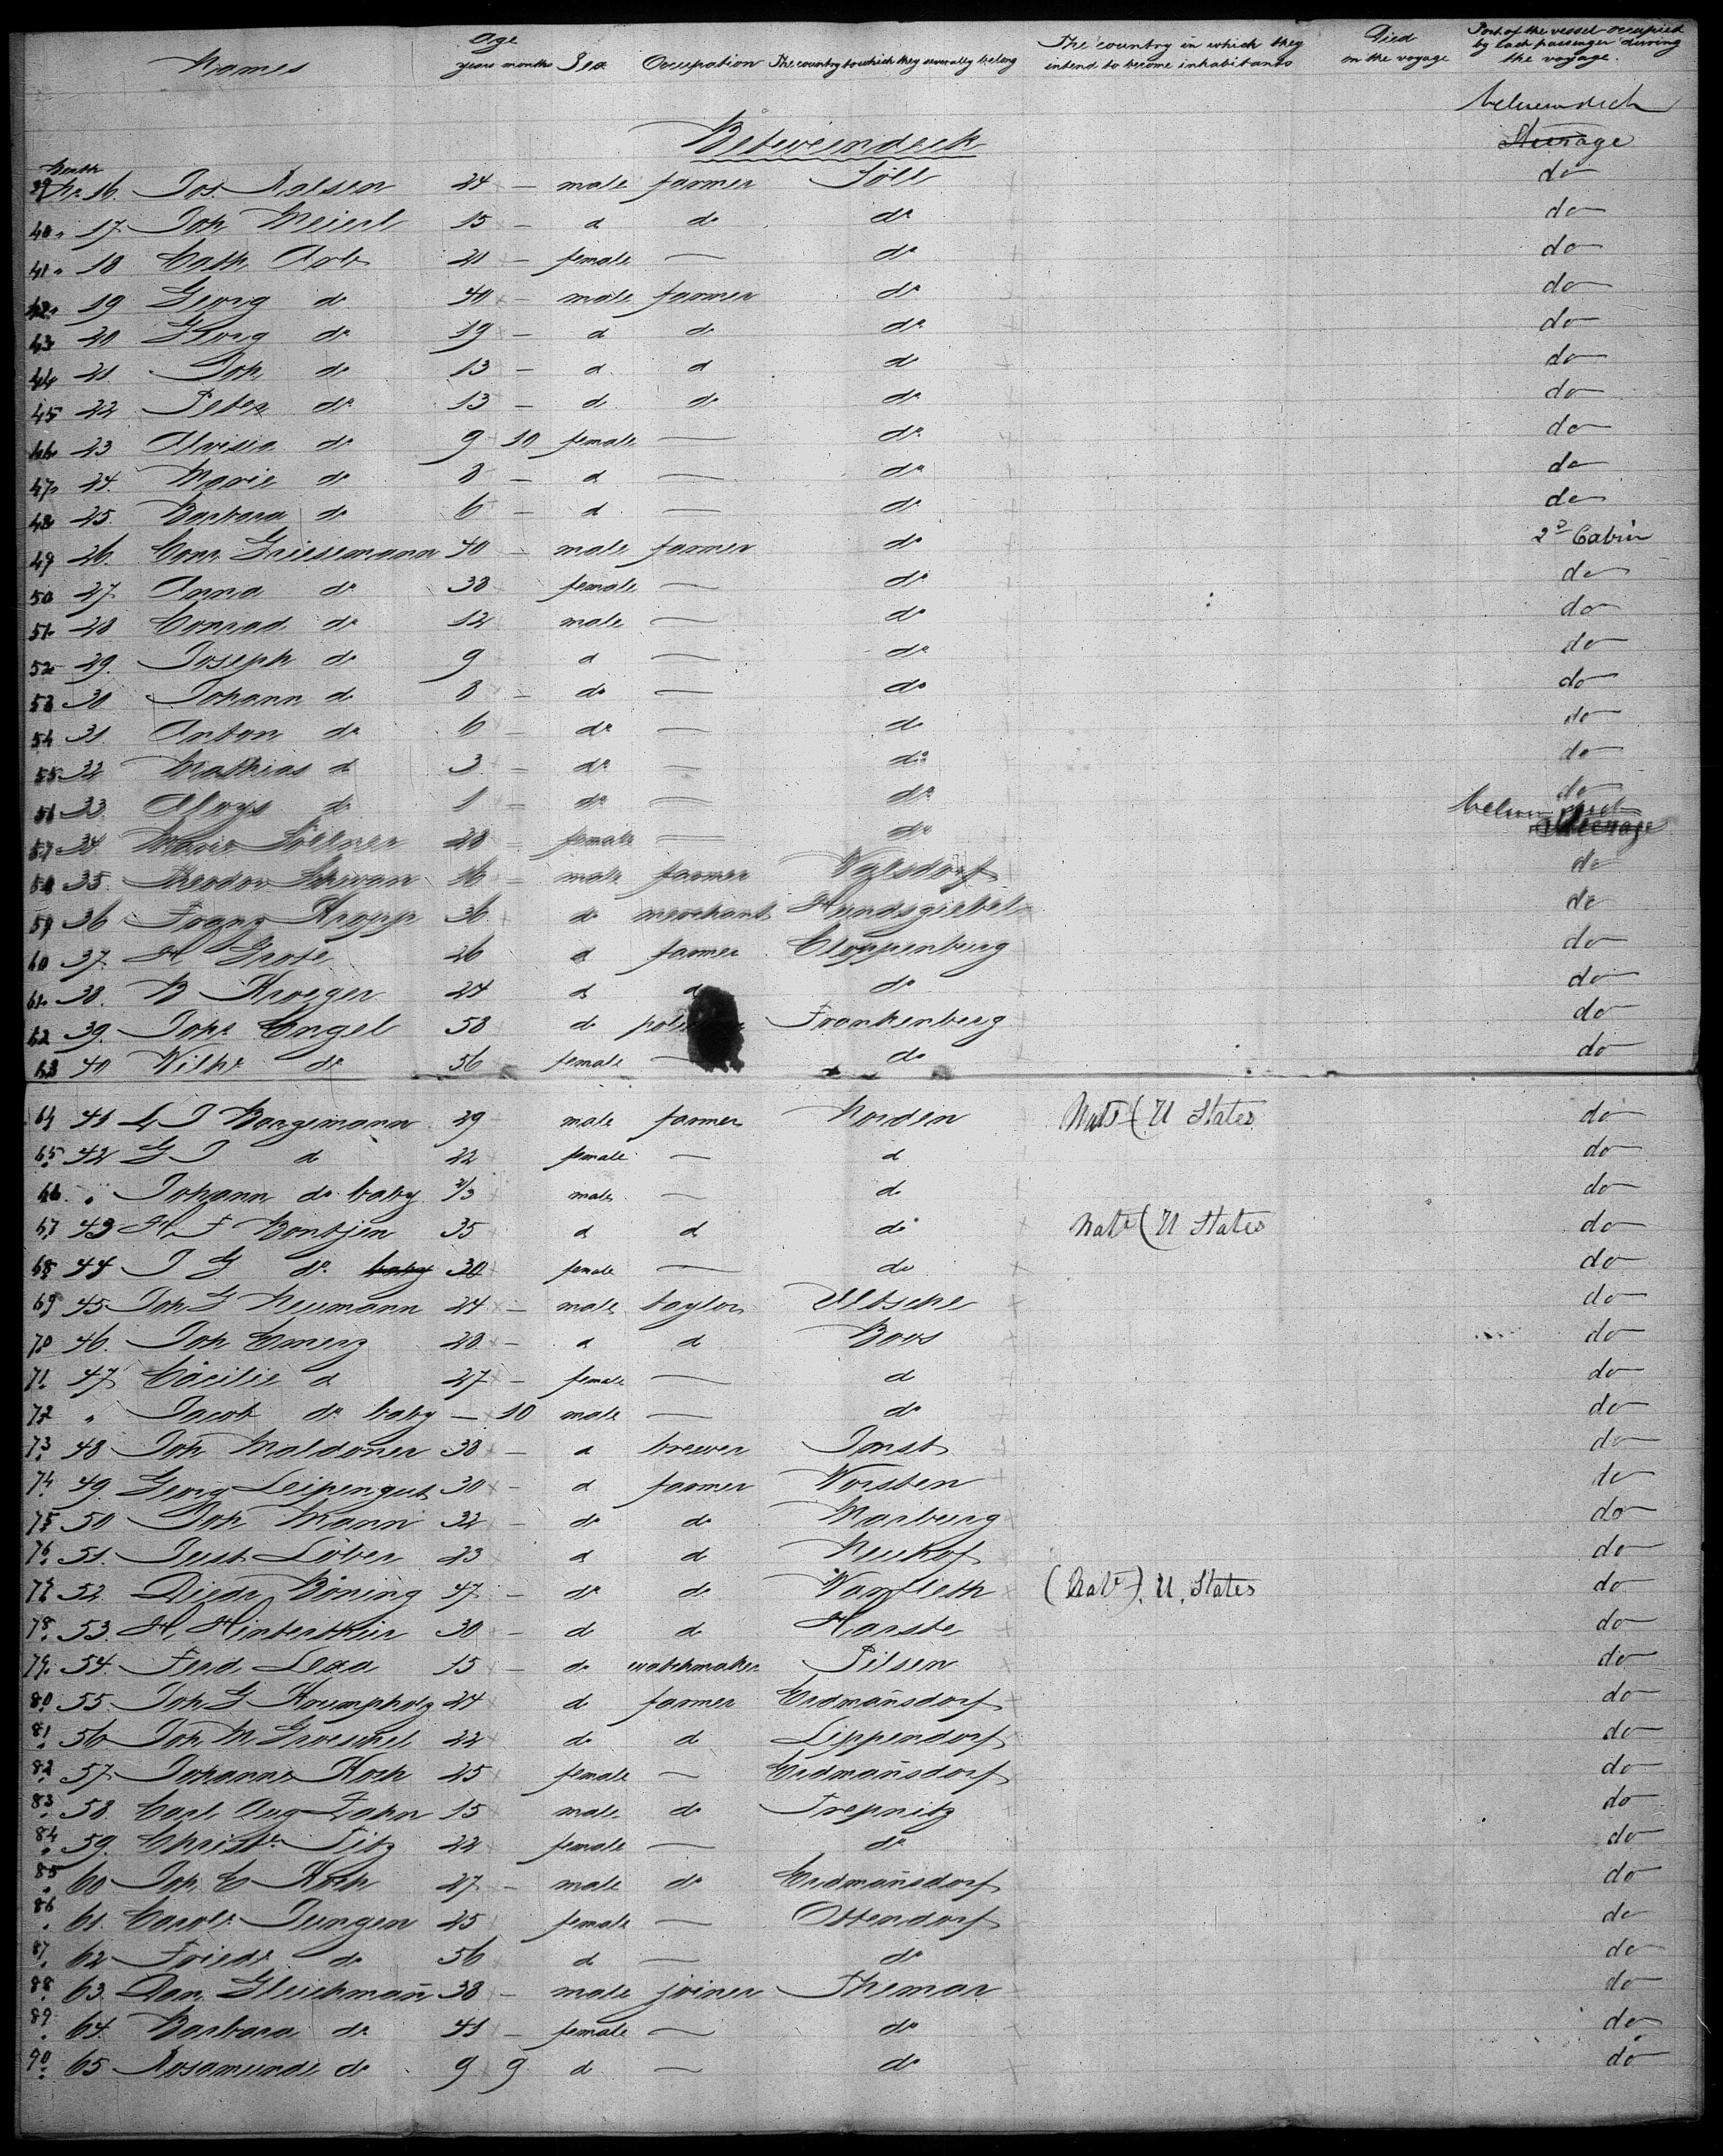 Names Age years months Sex Occupation The country to which they severally belong The country in which they intend to become inhabitants Died on the voyage Part of the vessel occupied by each passenger during the voyage.
Betweendeck
Steerage
39 16. Jos. male farmer Söll do
40 17. Joh. Meierl 15 – d do do do
41 18 Cath. 21 – female — do do
42 19 Georg do 40 – male farmer do do
43 20 Georg do 19 – d do do do
44 21. Joh. do 13 – d d d do
45 22 Peter do 13 – d do do do
46 23 Aloisia do 9 10 female — do do
47 24. Marie do 8 – d — do do
48 25. Barbara do 6 – d — do do
49 26. Conr. Griesemann 40 – male farmer do 2d Cabin
50 27. Anna do 38 female — do do
51 28 Conrad do 12 male — do do
52 29. Joseph do 9 d — do do
53 30 Johann do 8 – do — do do
54 31. Anton do 6 – do — do do
55 32 Mathias do 3 – do — do do
56 33. Aloys do 1 – do — do do
57 34 Marie Söllner 28 – female — do Steerage
58 35. Theodor Schwan 16 – male farmer do
59 36 Franz Kropp 36 do merchant Hundsgiebel do
60 37. H Grote 26 d farmer Cloppenburg do
61 38. B Kroeger 24 d d do do
62 39. Johs Engel 58 do Frankenberg do
63 40 Wilhe do 56 female — do do
64 41 L J Bargemann 29 male farmer Norden Nate ( U States do
65 42 G J d 22 female — d do
66 " Johann do baby 3/3 male — do do
67 43 H F Bontjen 35 d d do Nate ( U States do
68 44 J G do baby 34 female — do do
69 45 Joh G Neumann 24 – male taylor do
70 46. Joh Emerz 28 – d d Boos do
71 47 Cäcilie d 27 – female — d do
72 " Jacob do baby — 10 male — do do
73 48 Joh Maldoner 38 – d brewer Imst do
74 49. Georg Leipengut 30 – d farmer Vorsten do
75 50 Joh Mann 32 – do do Marburg do
76 51. Just Löber 23 d d Neuhof do
77 52. Diedr. Böning 47 – do do Warfleth (Nate) U. States do
78 53. H. Hinterthür 30 – d d Harste do
79 54. Ferd. Lexa 15 – do watchmaker Pilsen do
80 55. Joh G Krumpholz 24 d farmer Erdmañsdorf do
81 56 Joh M Groeschel 22 do d Lippendorf do
82 57. Johanne Koch 25 female — Erdmañsdorf do
83 58. Carl Aug Zahn 15 male do Trepnitz do
84 59. Christe. Titz 22 female — do do
85 60 Joh. C Koch 27 – male do Erdmañsdorf do
86 61. Carole Jungen 25 female — Ottendorf do
87 62 Friede do 56 d — do do
88 63. Dan. Gleichmañ 38 – male joiner Themar do
89 64. Barbara do 41 – female — do do
90 65 Rosamunde do 9 9 d — do do